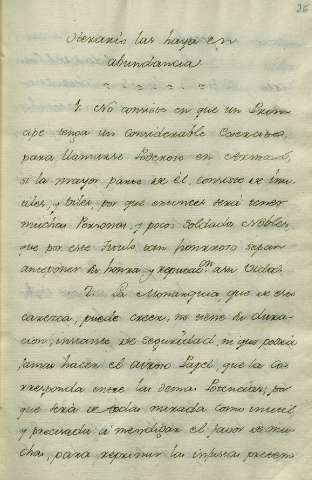 26
las haya en
abundancia
1. No consiste en que un Prin-
cipe tenga un considerable
para llamarse Poderoso en
si la mayor parte de él, consiste de inu-
tiles, y por que entonces será tener
muchas Personas, y pocos Soldados Nobles,
que por este titulo tan honroso sepan
anteponer la honra y reputac.on a sus Vidas.
2. La Monarquia que de esto
caresca, puede creer, no tiene de dura-
cion, instante de seguridad, ni que podrá
jamas hacer el Papel, que la co-
rresponda entre las demas Potencias; por
que será de todas mirada como inutil
y precisada a mendigar el favor de mu-
chas, para reprimir las injustas preten